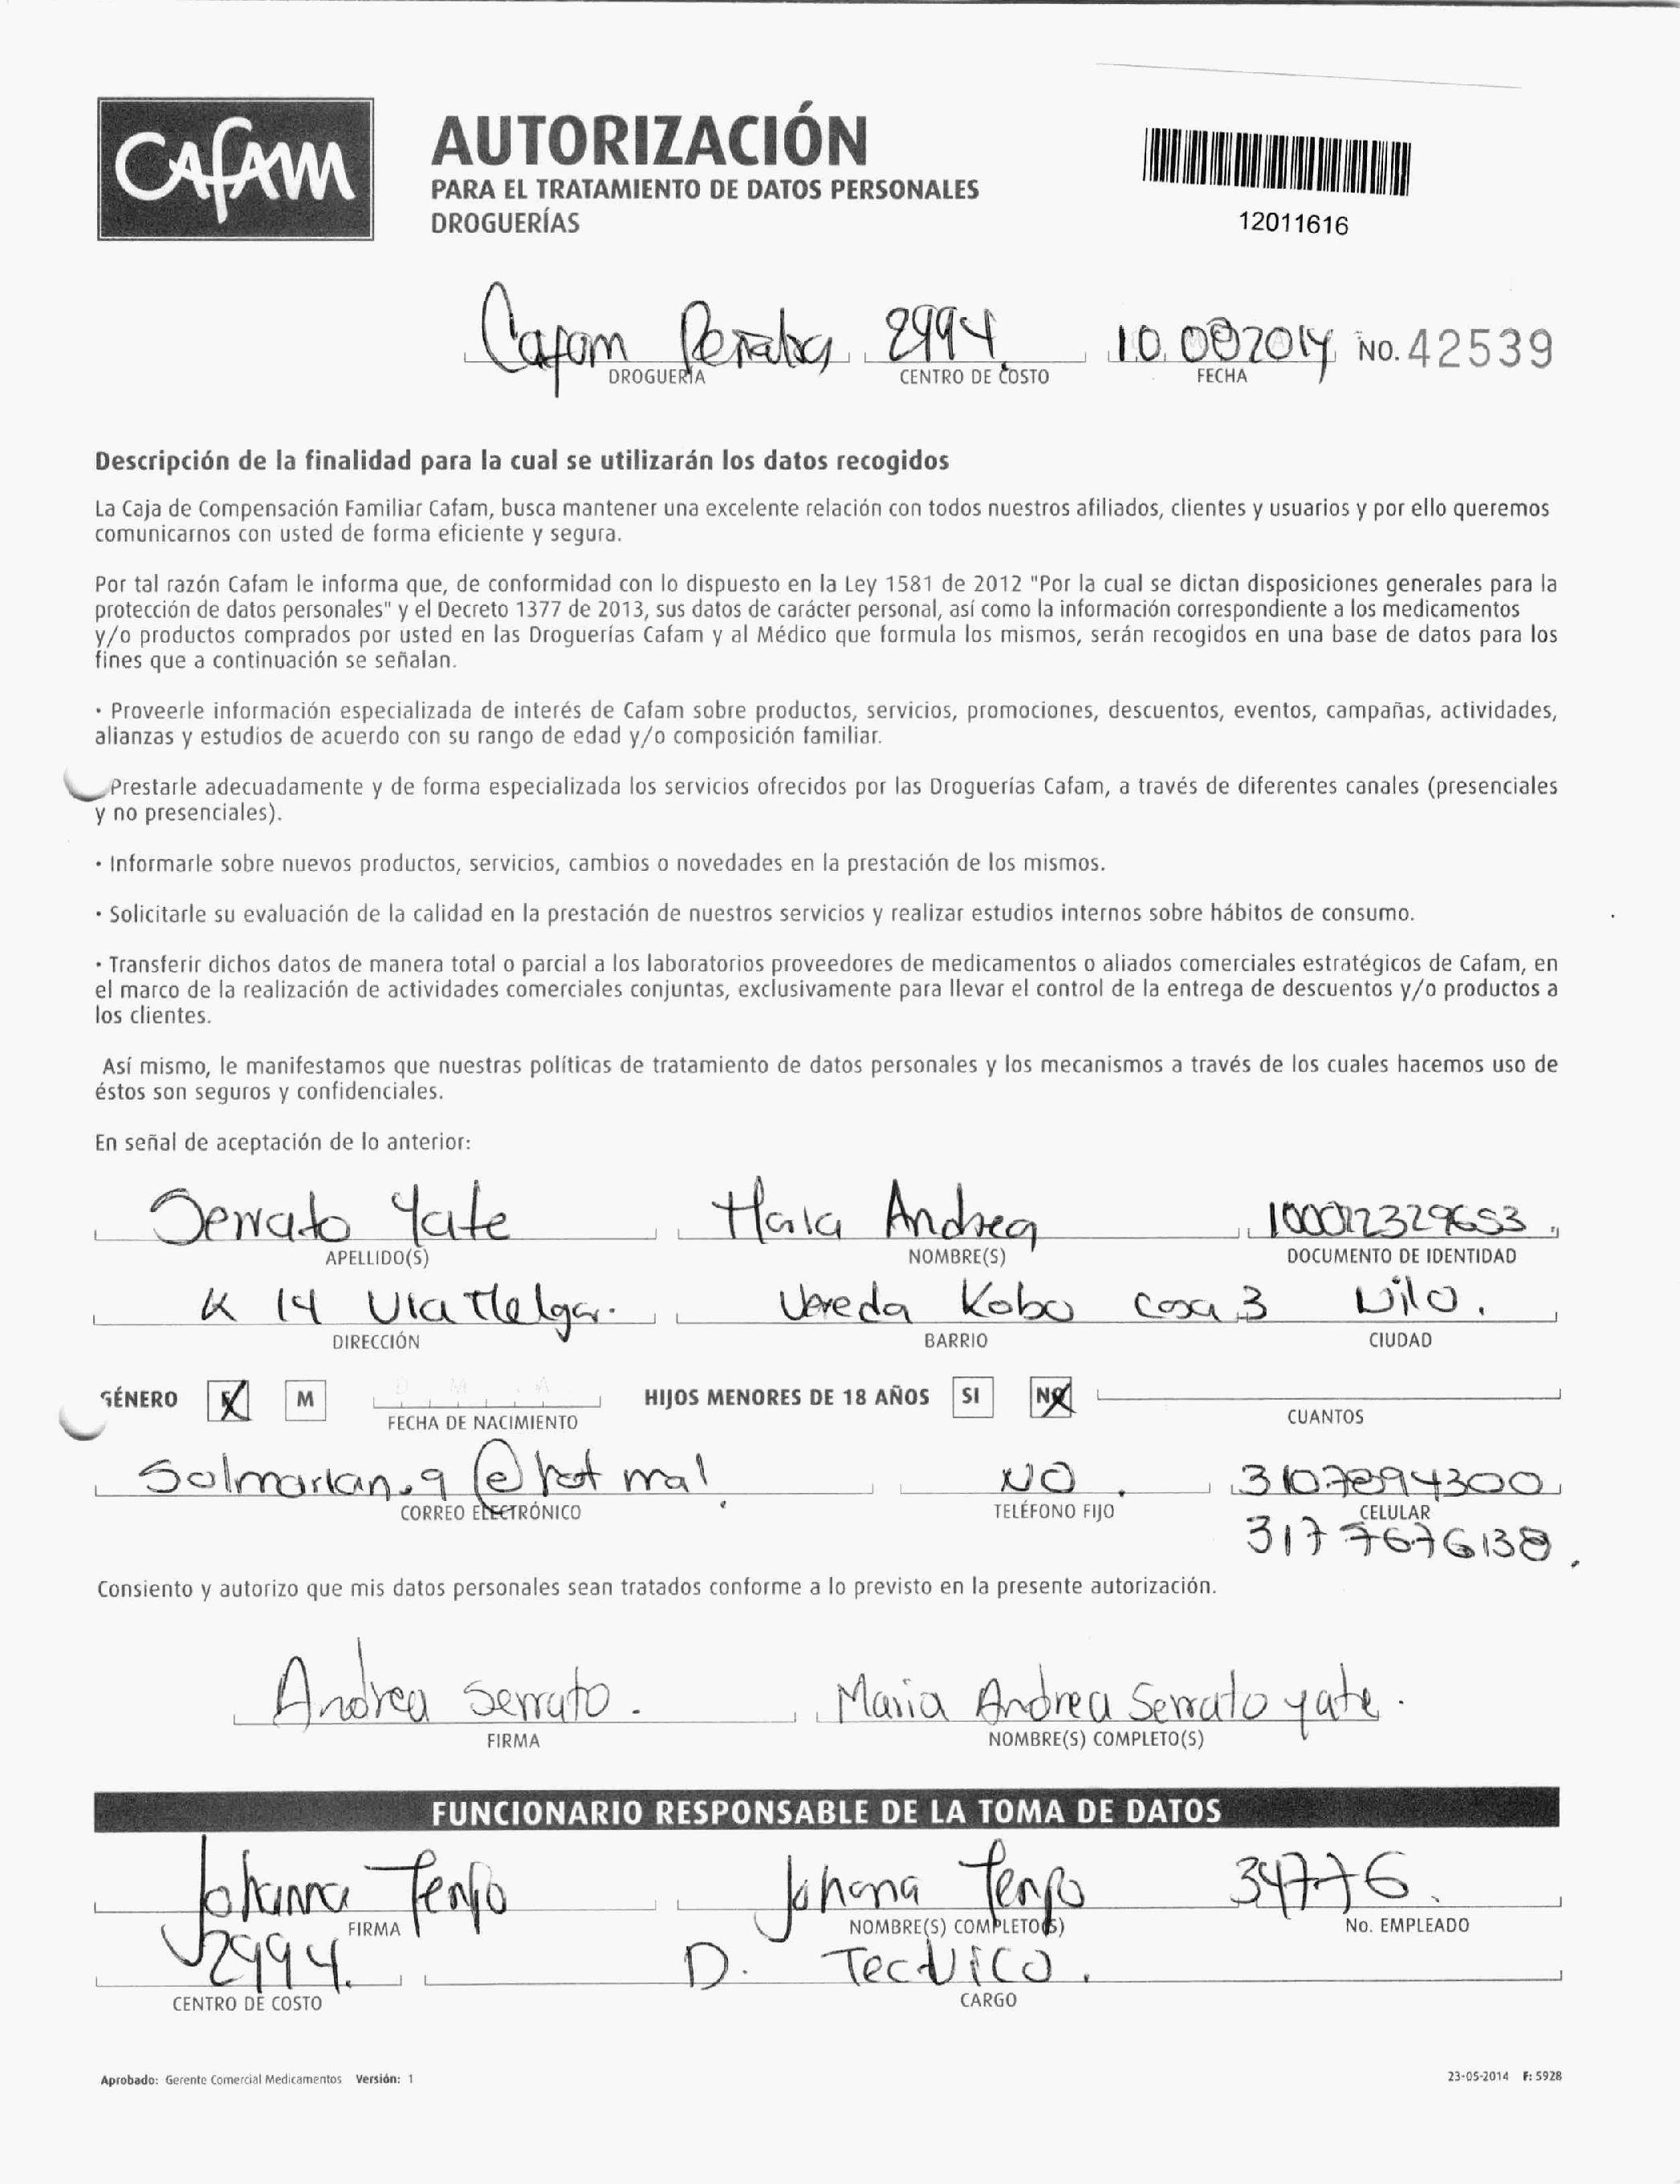 Cafam
AUTORIZACIÓN
PARA EL TRATAMIENTO DE DATOS PERSONALES
DROGUERÍAS
12011616
Cafam 2994 10 082014 No. 42539
DROGUERÍA CENTRO DE COSTO FECHA
Descripción de la finalidad para la cual se utilizarán los datos recogidos
La Caja de Compensación Familiar Cafam, busca mantener una excelente relación con todos nuestros afiliados, clientes y usuarios y por ello queremos
comunicarnos con usted de forma eficiente y segura.
Por tal razón Cafam le informa que, de conformidad con lo dispuesto en la Ley 1581 de 2012 "Por la cual se dictan disposiciones generales para la
protección de datos personales" y el Decreto 1377 de 2013, sus datos de carácter personal, así como la información correspondiente a los medicamentos
y/o productos comprados por usted en las Droguerías Cafam y al Médico que formula los mismos, serán recogidos en una base de datos para los
fines que a continuación se señalan.
· Proveerle información especializada de interés de Cafam sobre productos, servicios, promociones, descuentos, eventos, campañas, actividades,
alianzas y estudios de acuerdo con su rango de edad y/o composición familiar.
Prestarle adecuadamente y de forma especializada los servicios ofrecidos por las Droguerías Cafam, a través de diferentes canales (presenciales
y no presenciales).
· Informarle sobre nuevos productos, servicios, cambios o novedades en la prestación de los mismos.
· Solicitarle su evaluación de la calidad en la prestación de nuestros servicios y realizar estudios internos sobre hábitos de consumo.
· Transferir dichos datos de manera total o parcial a los laboratorios proveedores de medicamentos o aliados comerciales estratégicos de Cafam, en
el marco de la realización de actividades comerciales conjuntas, exclusivamente para llevar el control de la entrega de descuentos y/o productos a
los clientes.
Así mismo, le manifestamos que nuestras políticas de tratamiento de datos personales y los mecanismos a través de los cuales hacemos uso de
éstos son seguros y confidenciales.
En señal de aceptación de lo anterior:
Serrato Yate Maria Andrea
APELLIDO(S) NOMBRE(S) DOCUMENTO DE IDENTIDAD
K 14 Via Melgar. Vereda Kobo casa 3
DIRECCIÓN BARRIO CIUDAD
GÉNERO F M D M A HIJOS MENORES DE 18 AÑOS SI NO
FECHA DE NACIMIENTO CUANTOS
@hot mal NO. 3107894300
CORREO ELECTRÓNICO TELÉFONO FIJO CELULAR
317 7676138.
Consiento y autorizo que mis datos personales sean tratados conforme a lo previsto en la presente autorización.
Andrea Serrato. Maria Andrea Serrato yate.
FIRMA NOMBRE(S) COMPLETO(S)
FUNCIONARIO RESPONSABLE DE LA TOMA DE DATOS
Johanna Tenjo Johana Tenjo 34776.
FIRMA NOMBRE(S) COMPLETO(S) No. EMPLEADO
2994. D. TecNico.
CENTRO DE COSTO CARGO
Aprobado: Gerente Comercial Medicamentos Versión: 1 23-05-2014 F: 5928